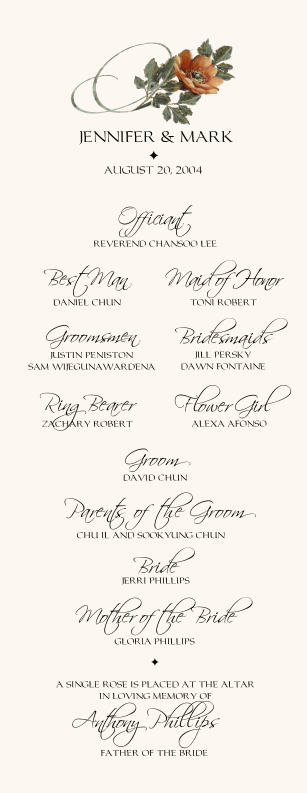 JENNIFER & MARK
AUGUST 20, 2004
Officiant
REVEREND CHANSOO LEE
Best Man
DANIEL CHUN
Maid of Honor
TONI ROBERT
Groomsmen
JUSTIN PENISTON
SAM WIJEGUNAWARDENA
Bridesmaids
JILL PERSKY
DAWN FONTAINE
Ring Bearer
ZACHARY ROBERT
Flower Girl
ALEXA AFONSO
Groom
DAVID CHUN
Parents of the Groom
CHU IL AND SOOKYUNG CHUN
Bride
JERRI PHILLIPS
Mother of the Bride
GLORIA PHILLIPS
A SINGLE ROSE IS PLACED AT THE ALTAR
IN LOVING MEMORY OF
Anthony Phillips
FATHER OF THE BRIDE